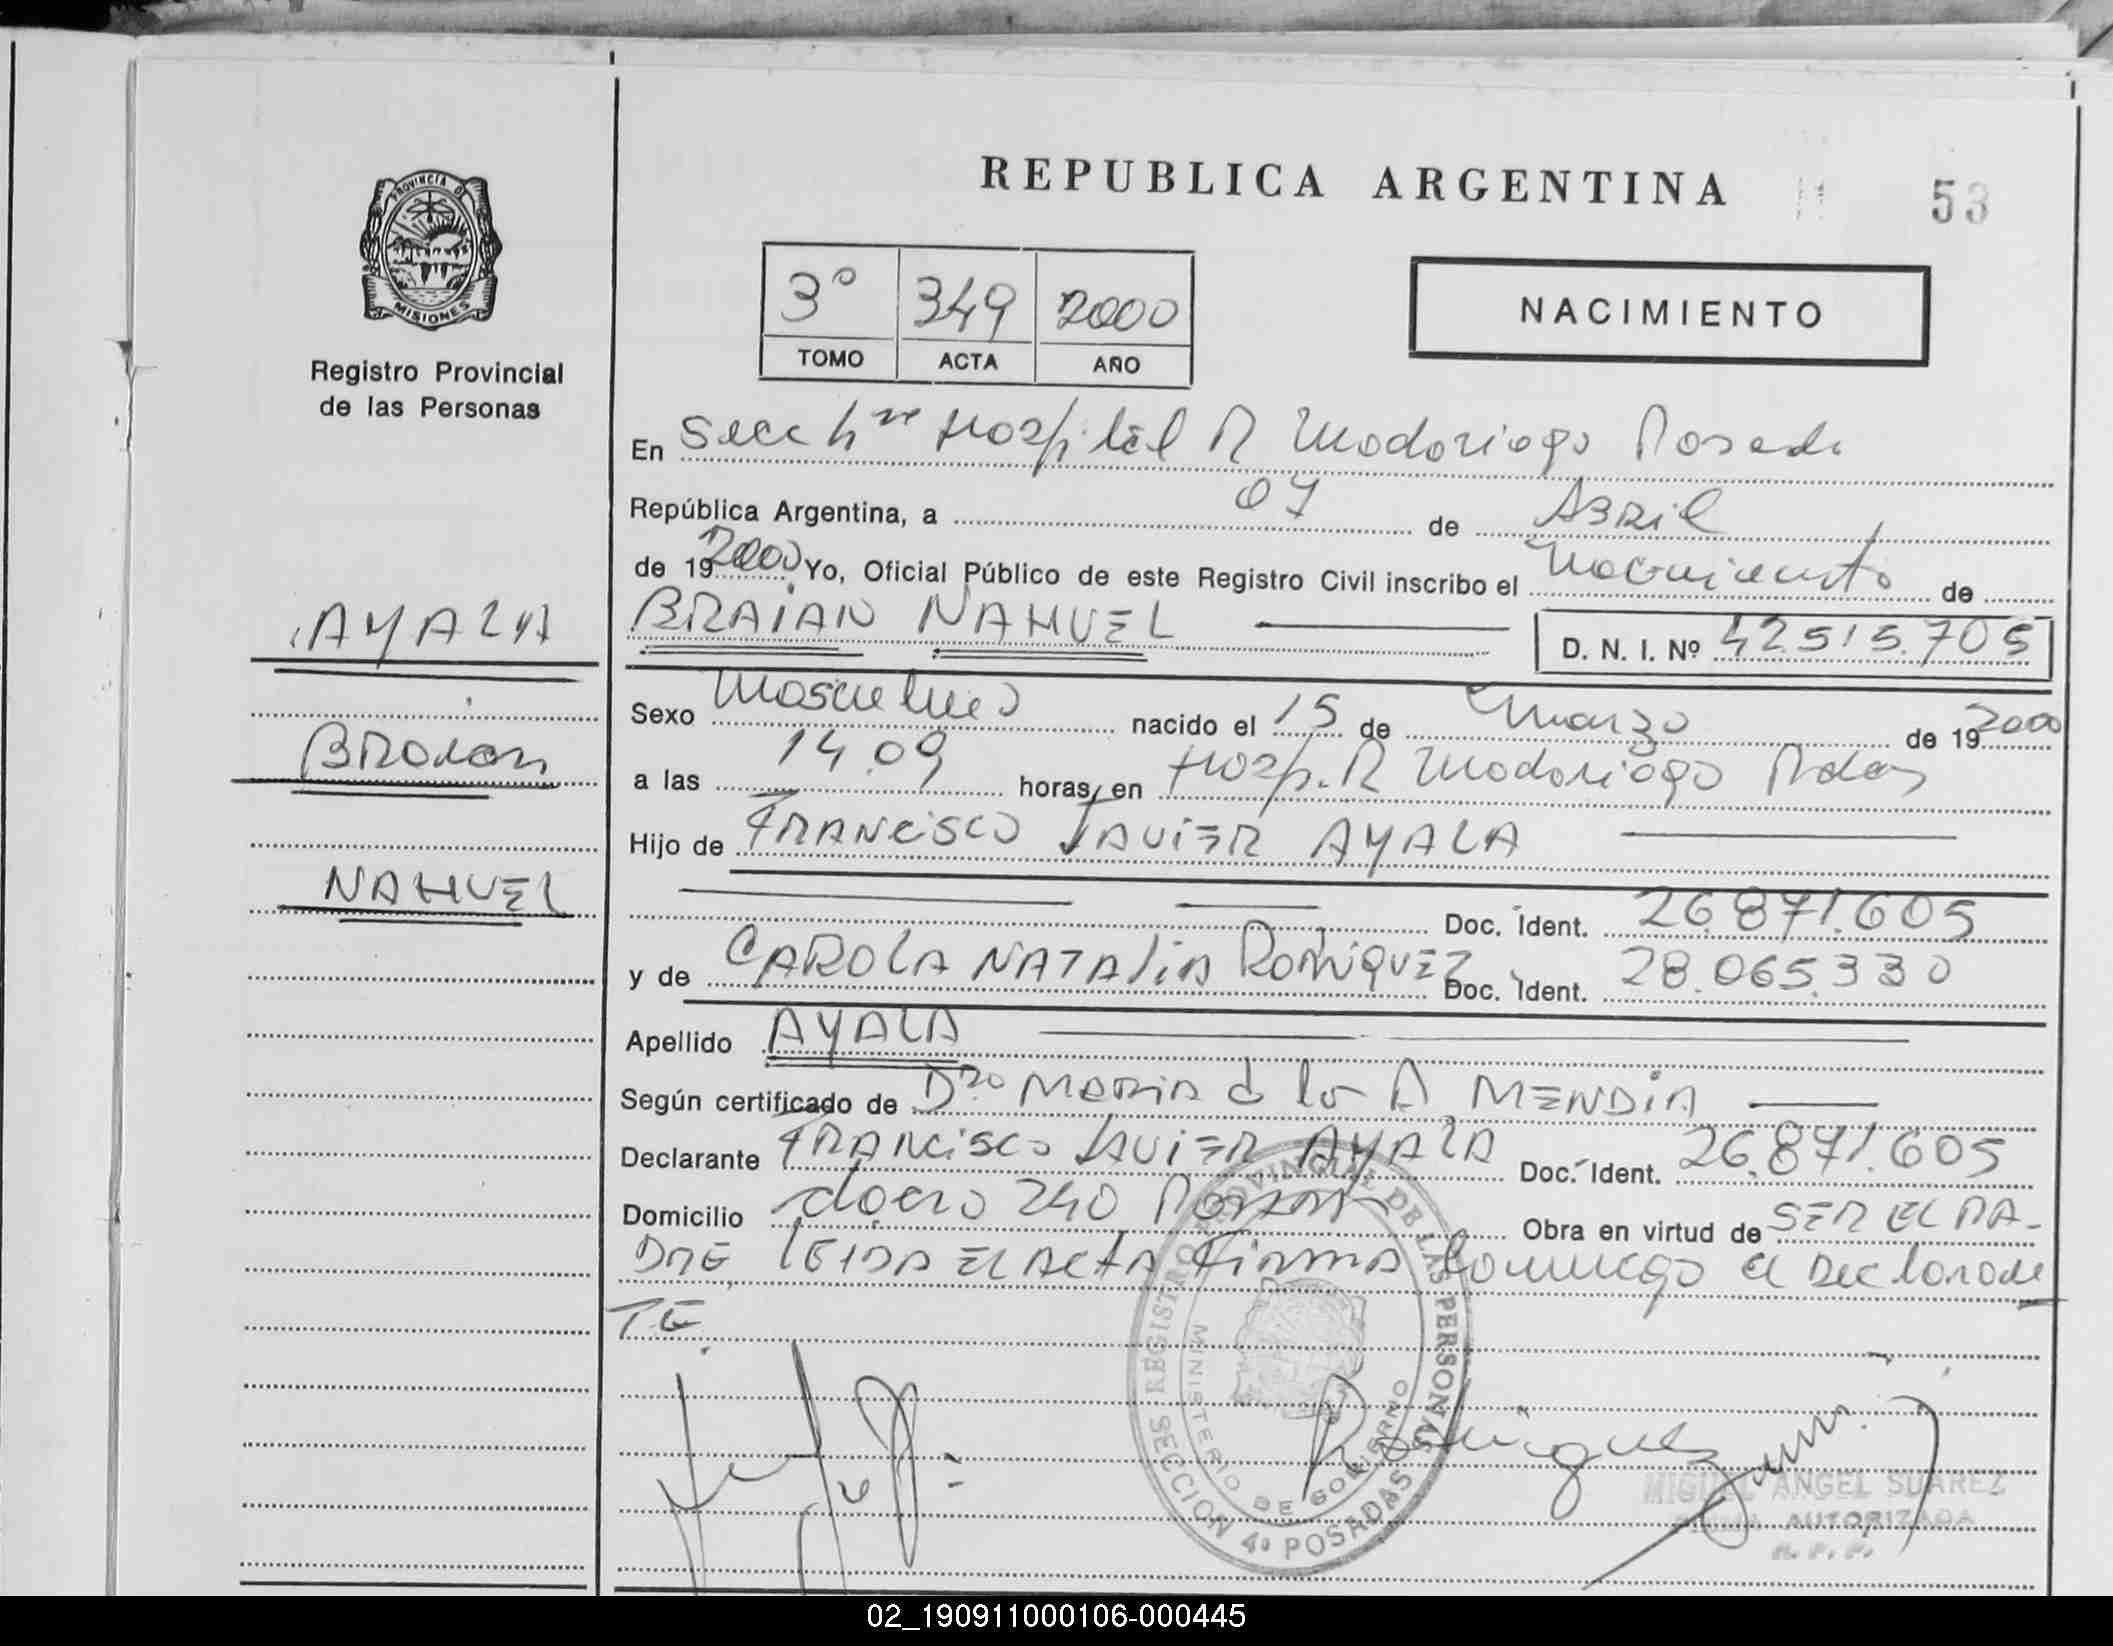 REPUBLICA ARGENTINA
53
PROVINCIA DE
MISIONES
Registro Provincial
de las Personas
3º 349 2000
TOMO ACTA AÑO
NACIMIENTO
En Secc Hospital R Madariaga Posadas
República Argentina, a 07 de ABRIL
de 19 2000 Yo, Oficial Público de este Registro Civil inscribo el Nacimiento de
AYALA
BRAIAN NAHUEL
D. N. I. Nº 42.515.705
Sexo Masculino nacido el 15 de Marzo de 19 2000
BRAIAN
a las 14.09 horas, en Hosp. R Madariaga Pdas
Hijo de FRANCISCO JAVIER AYALA
NAHUEL
Doc. Ident. 26.871.605
y de CAROLA NATALIA RODRIGUEZ Doc. Ident. 28.065.330
Apellido AYALA
Según certificado de Dra MARIA d los A MENDIA
Declarante FRANCISCO JAVIER AYALA Doc. Ident. 26.871.605
Domicilio 240 Obra en virtud de SER EL PA-
DRE, LEIDA EL ACTA FIRMA conmigo el DEClarante
TE.
REGISTRO PROVINCIAL DE LAS PERSONAS
MINISTERIO DE GOBIERNO
SECCION 4ª POSADAS
Rodriguez
MIGUEL ANGEL SUAREZ
FIRMA AUTORIZADA
R. P. P.
02_190911000106-000445